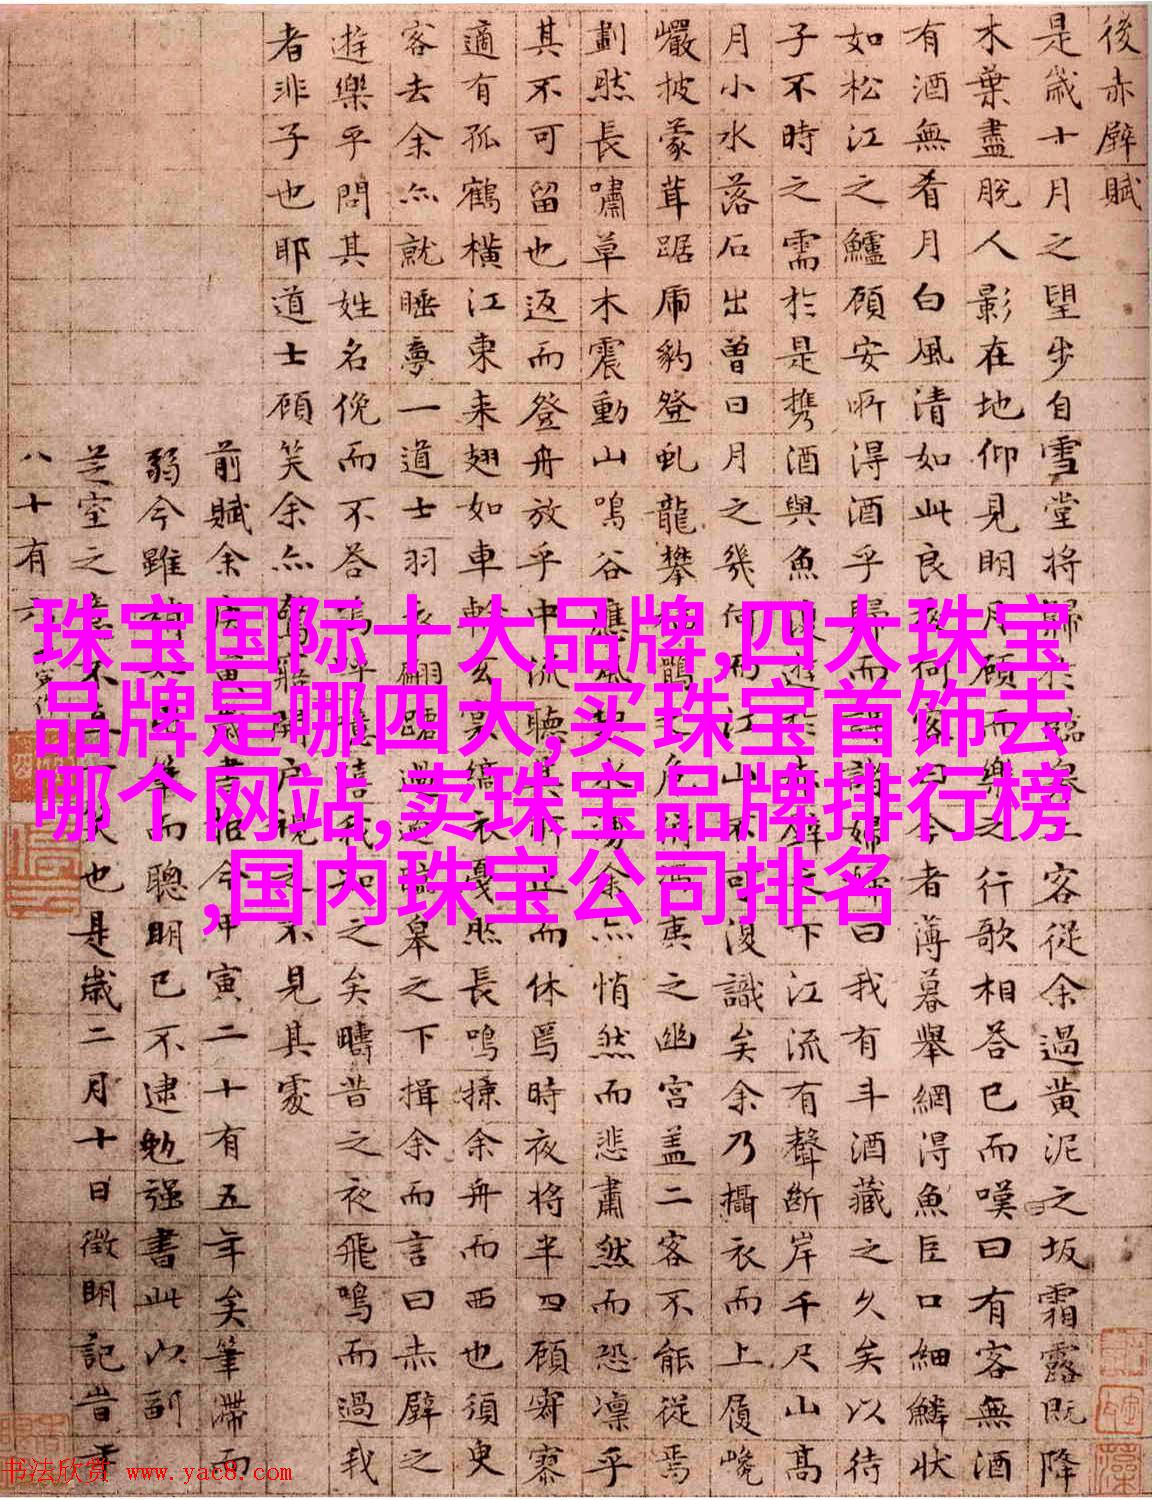 後赤壁賦
是歲十月之望步自雪堂將歸於臨皋二客從余過黃泥之坂霜露既降
木葉盡脫人影在地仰見明月顧而樂之行歌相答已而嘆曰有客無酒
有酒無肴月白風清如此良夜何客曰今者薄暮舉網得魚巨口細鱗狀
如松江之鱸顧安所得酒乎歸而謀諸婦婦曰我有斗酒藏之久矣以待
子不時之需於是携酒與魚復遊於赤壁之下江流有聲斷岸千尺山高
月小水落石出曾日月之幾何而江山不可復識矣余乃攝衣而上履巉
巖披蒙茸踞虎豹登虬龍攀鶻之危夷之幽宮盖二客不能從焉
劃然長嘯草木震動山鳴谷應風起水湧余亦悄然而悲肅然而恐凜乎
其不可留也返而登舟放乎中流聽其所止而休焉時夜將半四顧寂寥
適有孤鶴橫江東来翅如車輪玄裳縞衣戛然長鳴掠余舟而西也須臾
客去余亦就睡夢一道士羽衣翩躚過臨皋之下揖余而言曰赤壁之
遊樂乎問其姓名俛而不答嗚呼噫嘻我知之矣疇昔之夜飛鳴而過我
者非子也耶道士顧笑余亦驚寤開戶視之不見其處
前賦余庚寅歲書抵今甲寅二十有五年矣筆滯而
弱今雖筆而聰明已不逮勉强書此以副
芝室之意不也是歲二月十日徵明記
八十有六
珠宝国际十大品牌,四大珠宝
品牌是哪四大,买珠宝首饰去
哪个网站,卖珠宝品牌排行榜
,国内珠宝公司排名
书法欣赏 www.yac8.com